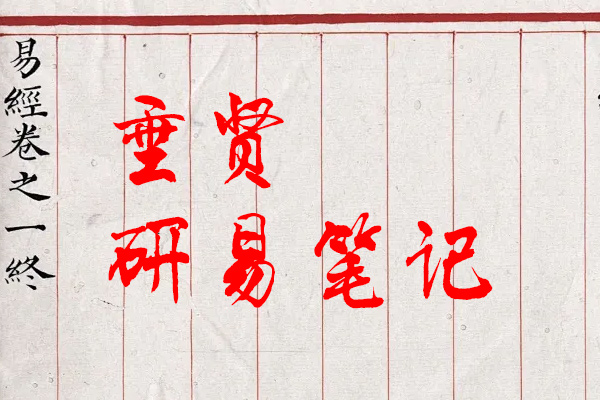 易經卷之一終
垂贤
研易笔记